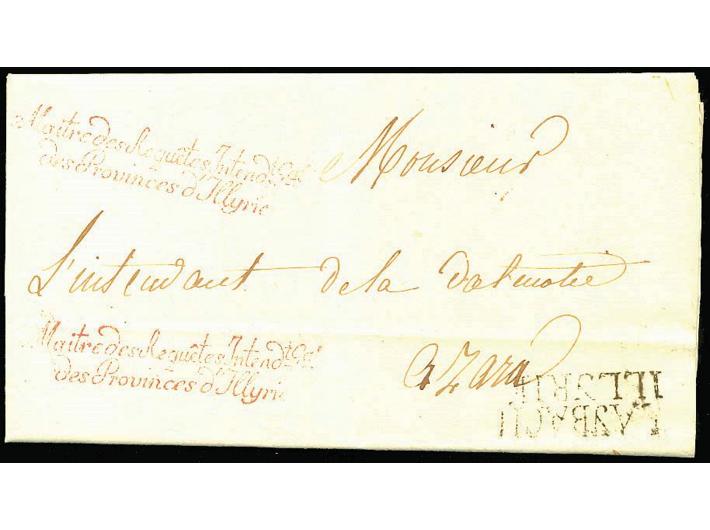 Maitre des Requêtes Intend.t G.al
des Provinces d'Illyrie
Monsieur
L'intendant de la dalmatie
Maitre des Requêtes Intend.t G.al
des Provinces d'Illyrie
a Zara
LAYBACH
ILLYRIE